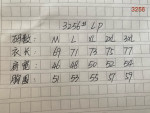 3256
3256# LP
码数: M L XL 2XL 3XL
衣长 69 71 73 75 77
肩宽 46 48 50 52 54
胸围 51 53 55 57 59